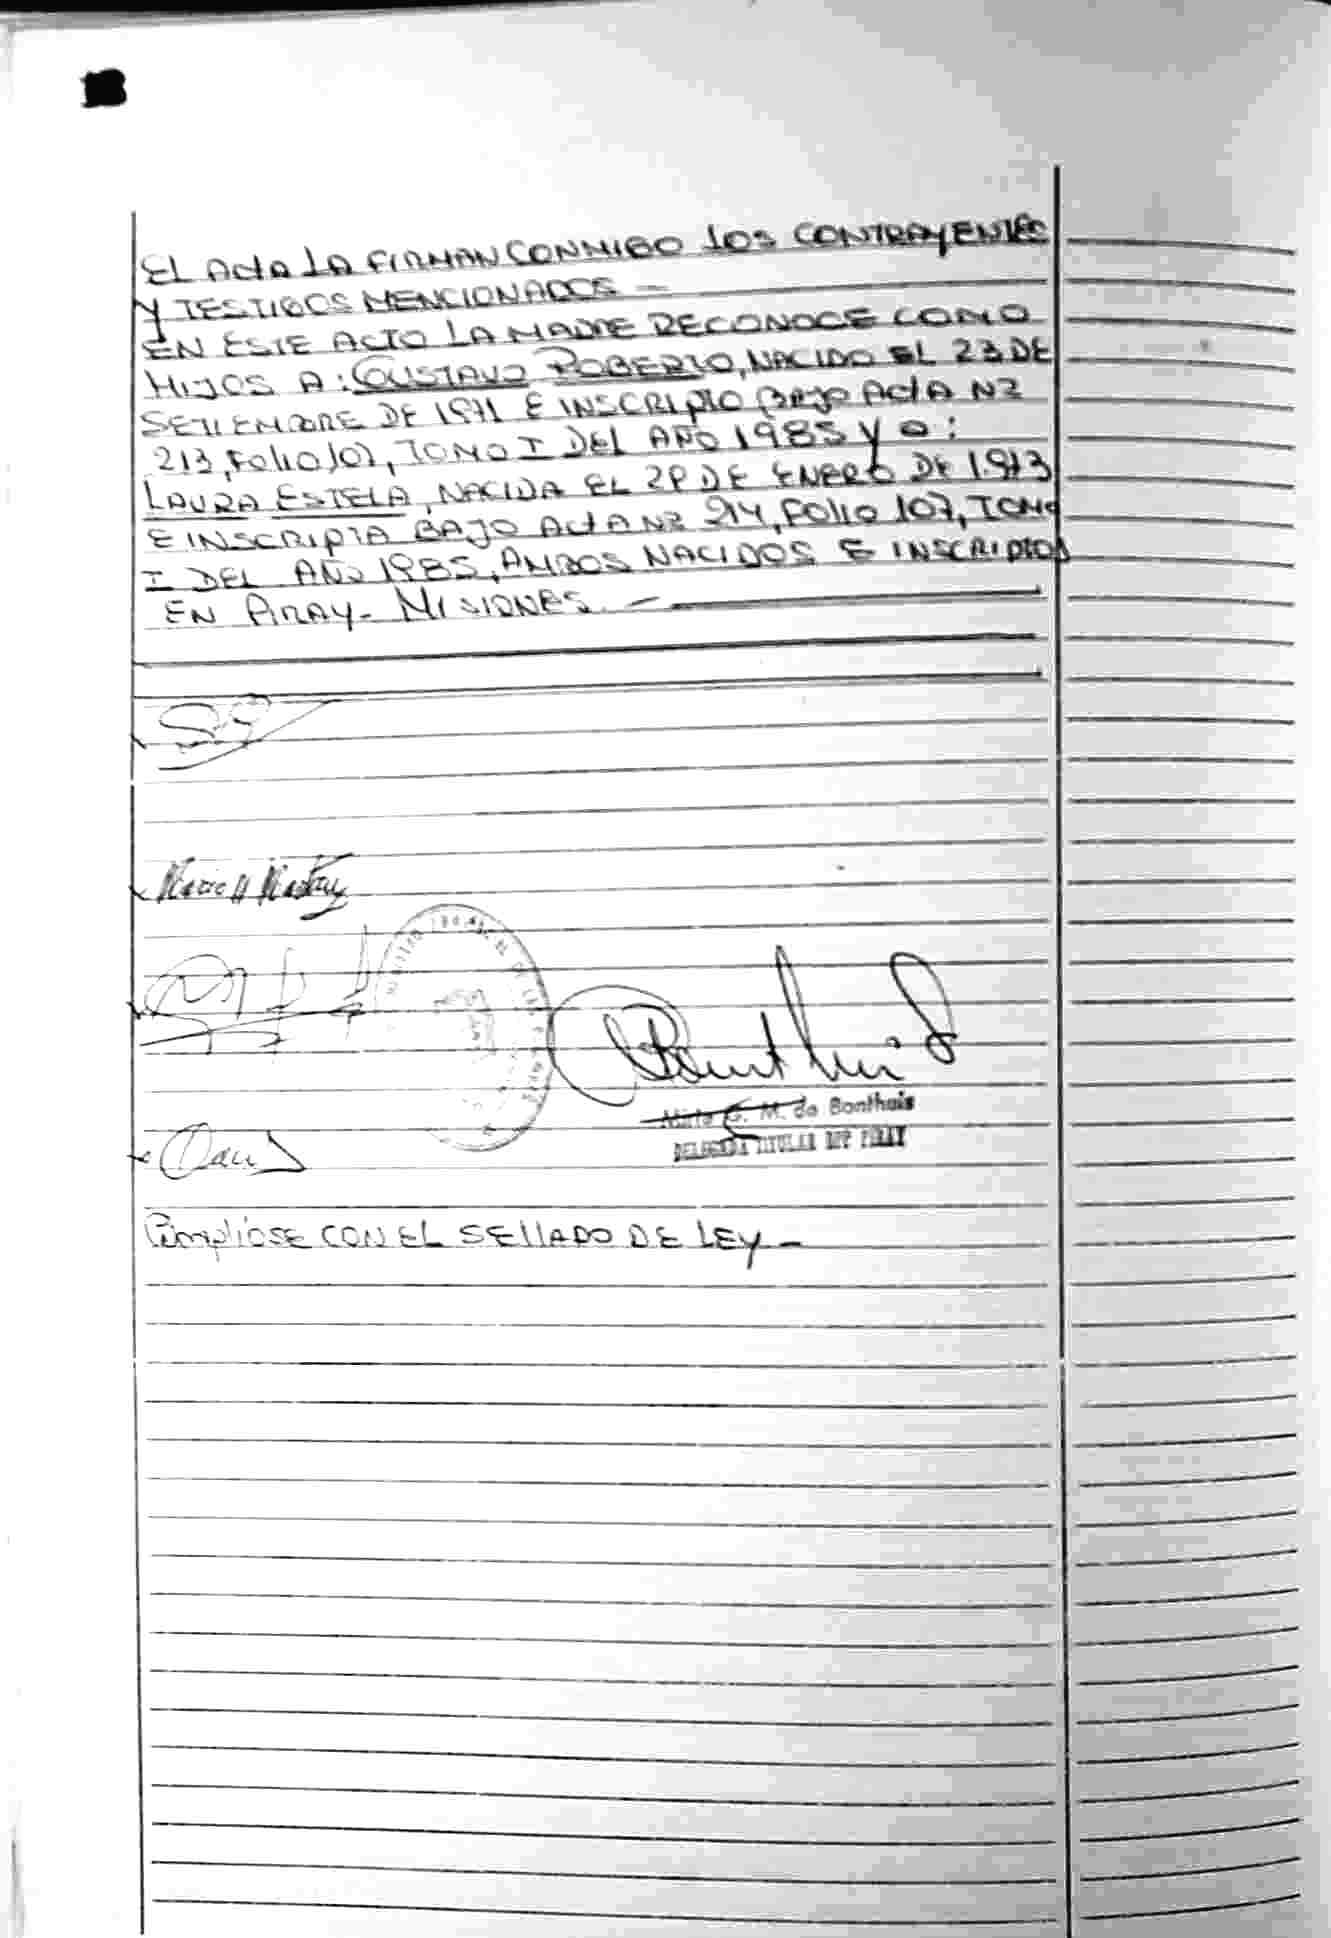 EL ACTA LA FIRMAN CONMIGO LOS CONTRAYENTES
Y TESTIGOS MENCIONADOS —
EN ESTE ACTO LA MADRE RECONOCE COMO
HIJOS A: GUSTAVO ROBERTO, NACIDO EL 23 DE
SETIEMBRE DE 1971 E INSCRIPTO BAJO ACTA Nº
213, FOLIO 107, TOMO I DEL AÑO 1985 y a:
LAURA ESTELA, NACIDA EL DE ENERO DE 1973
E INSCRIPTA BAJO ACTA Nº 214, FOLIO 107, TOMO
I DEL AÑO 1985, AMBOS NACIDOS E INSCRIPTOS
EN PIRAY- MISIONES. —
Mirta G. M. de Bonthuis
DELEGADA TITULAR PIRAY
CUMPLIOSE CON EL SELLADO DE LEY —